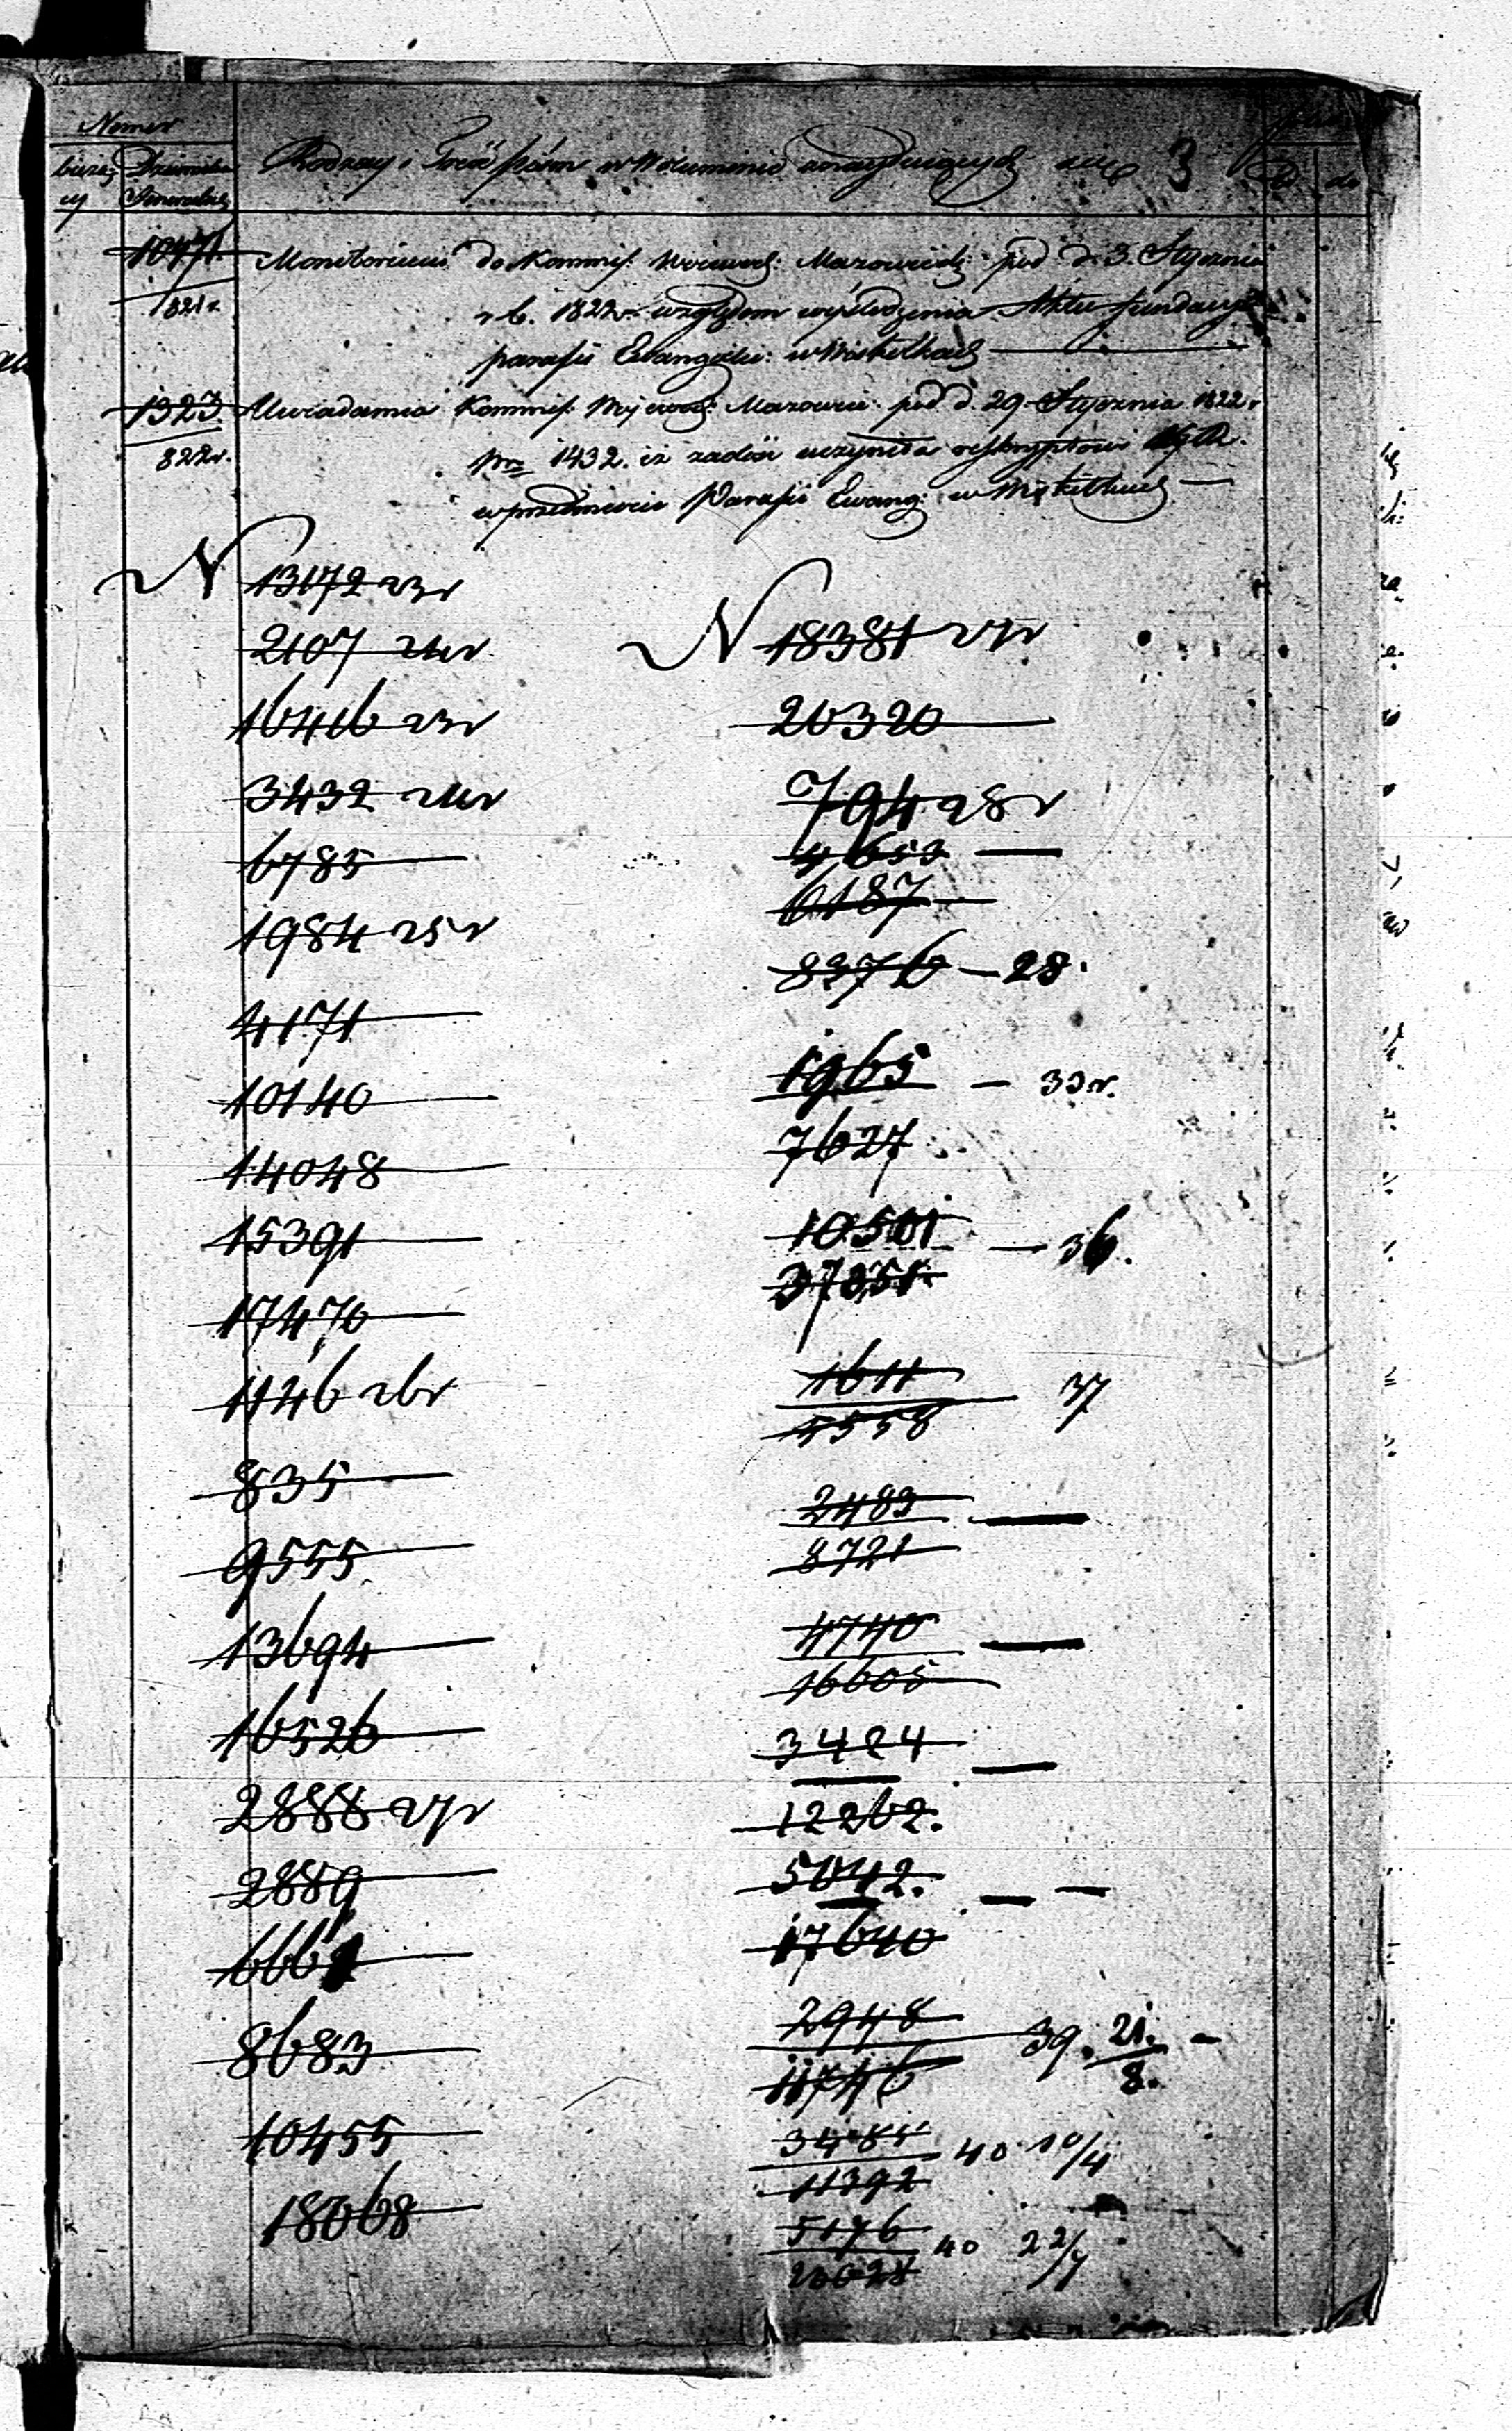 Numer
bieżą- Dziennika
cy Generalny
Rodzay i Treść pism w Woluminie znayduiących się 3
10471. Monitorium do Kommis: Woiewod: Mazowiecki: pod d. 3. Stycznia
821 r. r. b. 1822 r. względem wyśledzenia Aktu fundacyi
parafii Ewangelic: w Wiskitkach
1323 Uwiadamia Kommis: Wojewod: Mazowiec: pod d. 29 Stycznia 1822 r
822 r. Nro 1432. iż zadość uczyniła reskryptowi
w przedmiocie Parafii Ewang: w Wiskitkach
N 13172 23 r
2107 24 r
16416 23 r
3432 24 r
6785
1984 25 r
4171
10140
14048
15391
17470
1146 26 r
835
9555
13694
16526
2888 27 r
2889
6661
8683
10455
18068
N 18381 27 r
20320
794 28 r
4653
6187
8376 - 28.
1965 - 33 r.
7627
10501 - 36.
37351.
1611 37
5558
2483
8721
4740
16605
3424
12262.
5042.
17640
2948 39. 21. -
11746 8.
3485 40 10/4
11392
5176 40 22/7